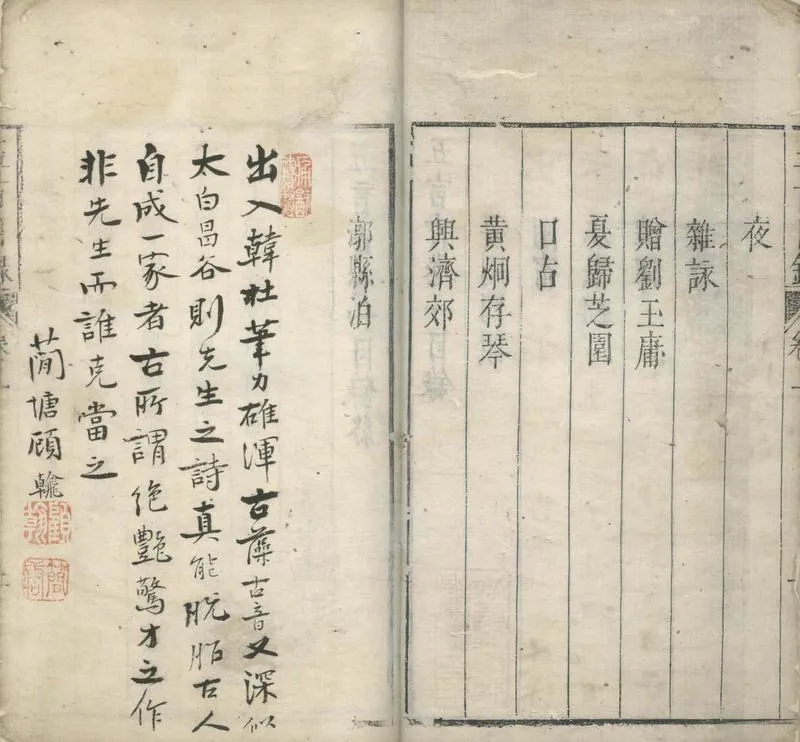 夜
雜詠
贈劉玉庸
夏歸芝園
口占
黃炯存琴
興濟郊
漷縣泊
出入韓杜筆力雄渾古藻古音又深似
太白昌谷則先生之詩真能脫胎古人
自成一家者古所謂絕艷驚才之作
非先生而誰克當之
蕳塘顧翰
顧翰
簡塘